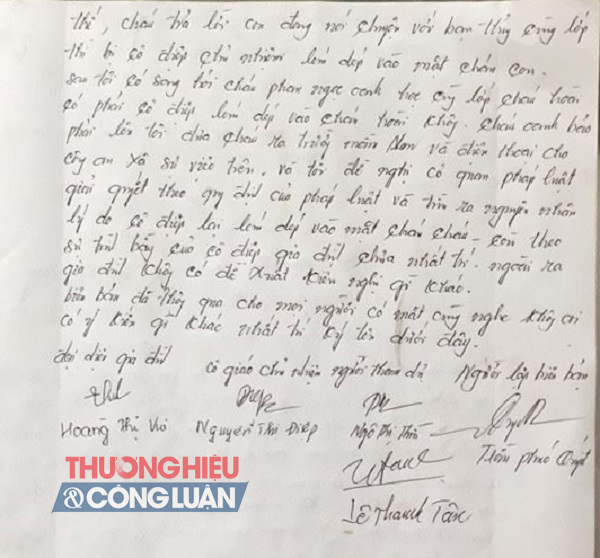 thế, cháu trả lời con đang nói chuyện với bạn Thủy cùng lớp
thì bị cô điệp chủ nhiệm lém dép vào mắt cháu con.
sau tôi có sang hỏi cháu phan ngọc canh học cùng lớp cháu hoài
có phải cô điệp lém dép vào cháu hoài không. cháu canh bảo
phải lên tôi đưa cháu ra trường mầm Non và điện thoại cho
công an xã sự việc trên. và tôi đề nghị cơ quan pháp luật
giải quyết theo quy định của pháp luật và tìm ra nguyên nhân
lý do cô điệp lại lém dép vào mặt cháu cháu. còn theo
sự trình bầy của cô điệp gia đình chưa nhất trí. ngoài ra
gia đình không có đề xuất kiến nghị gì khác.
biên bản đã thông qua cho mọi người có mặt cùng nghe không ai
có ý kiến gì khác nhất trí ký tên dưới đây.
đại diện gia đình cô giáo chủ nhiệm người tham dự Người lập biên bản
Hoàng Thị Nguyễn Thị Điệp Ngô Thị
THƯƠNG HIỆU
& CÔNG LUẬN
Lê Thanh Tân